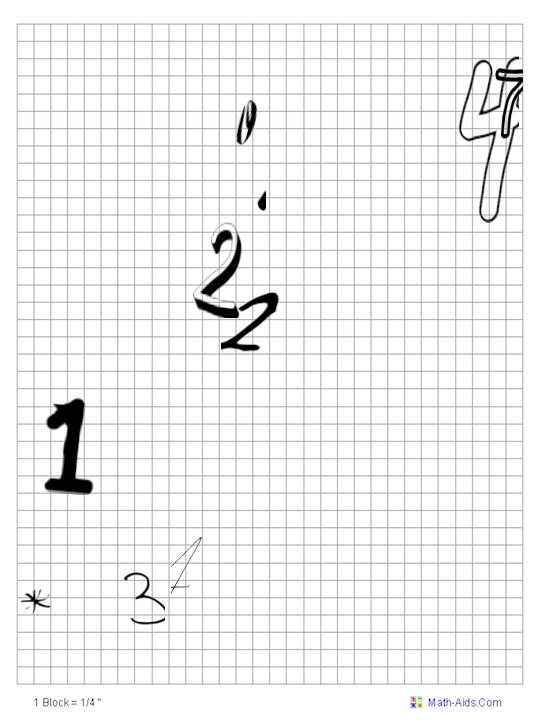 4 7
0
.
2
2
1
1
* 3
1 Block = 1/4 "
Math-Aids.Com